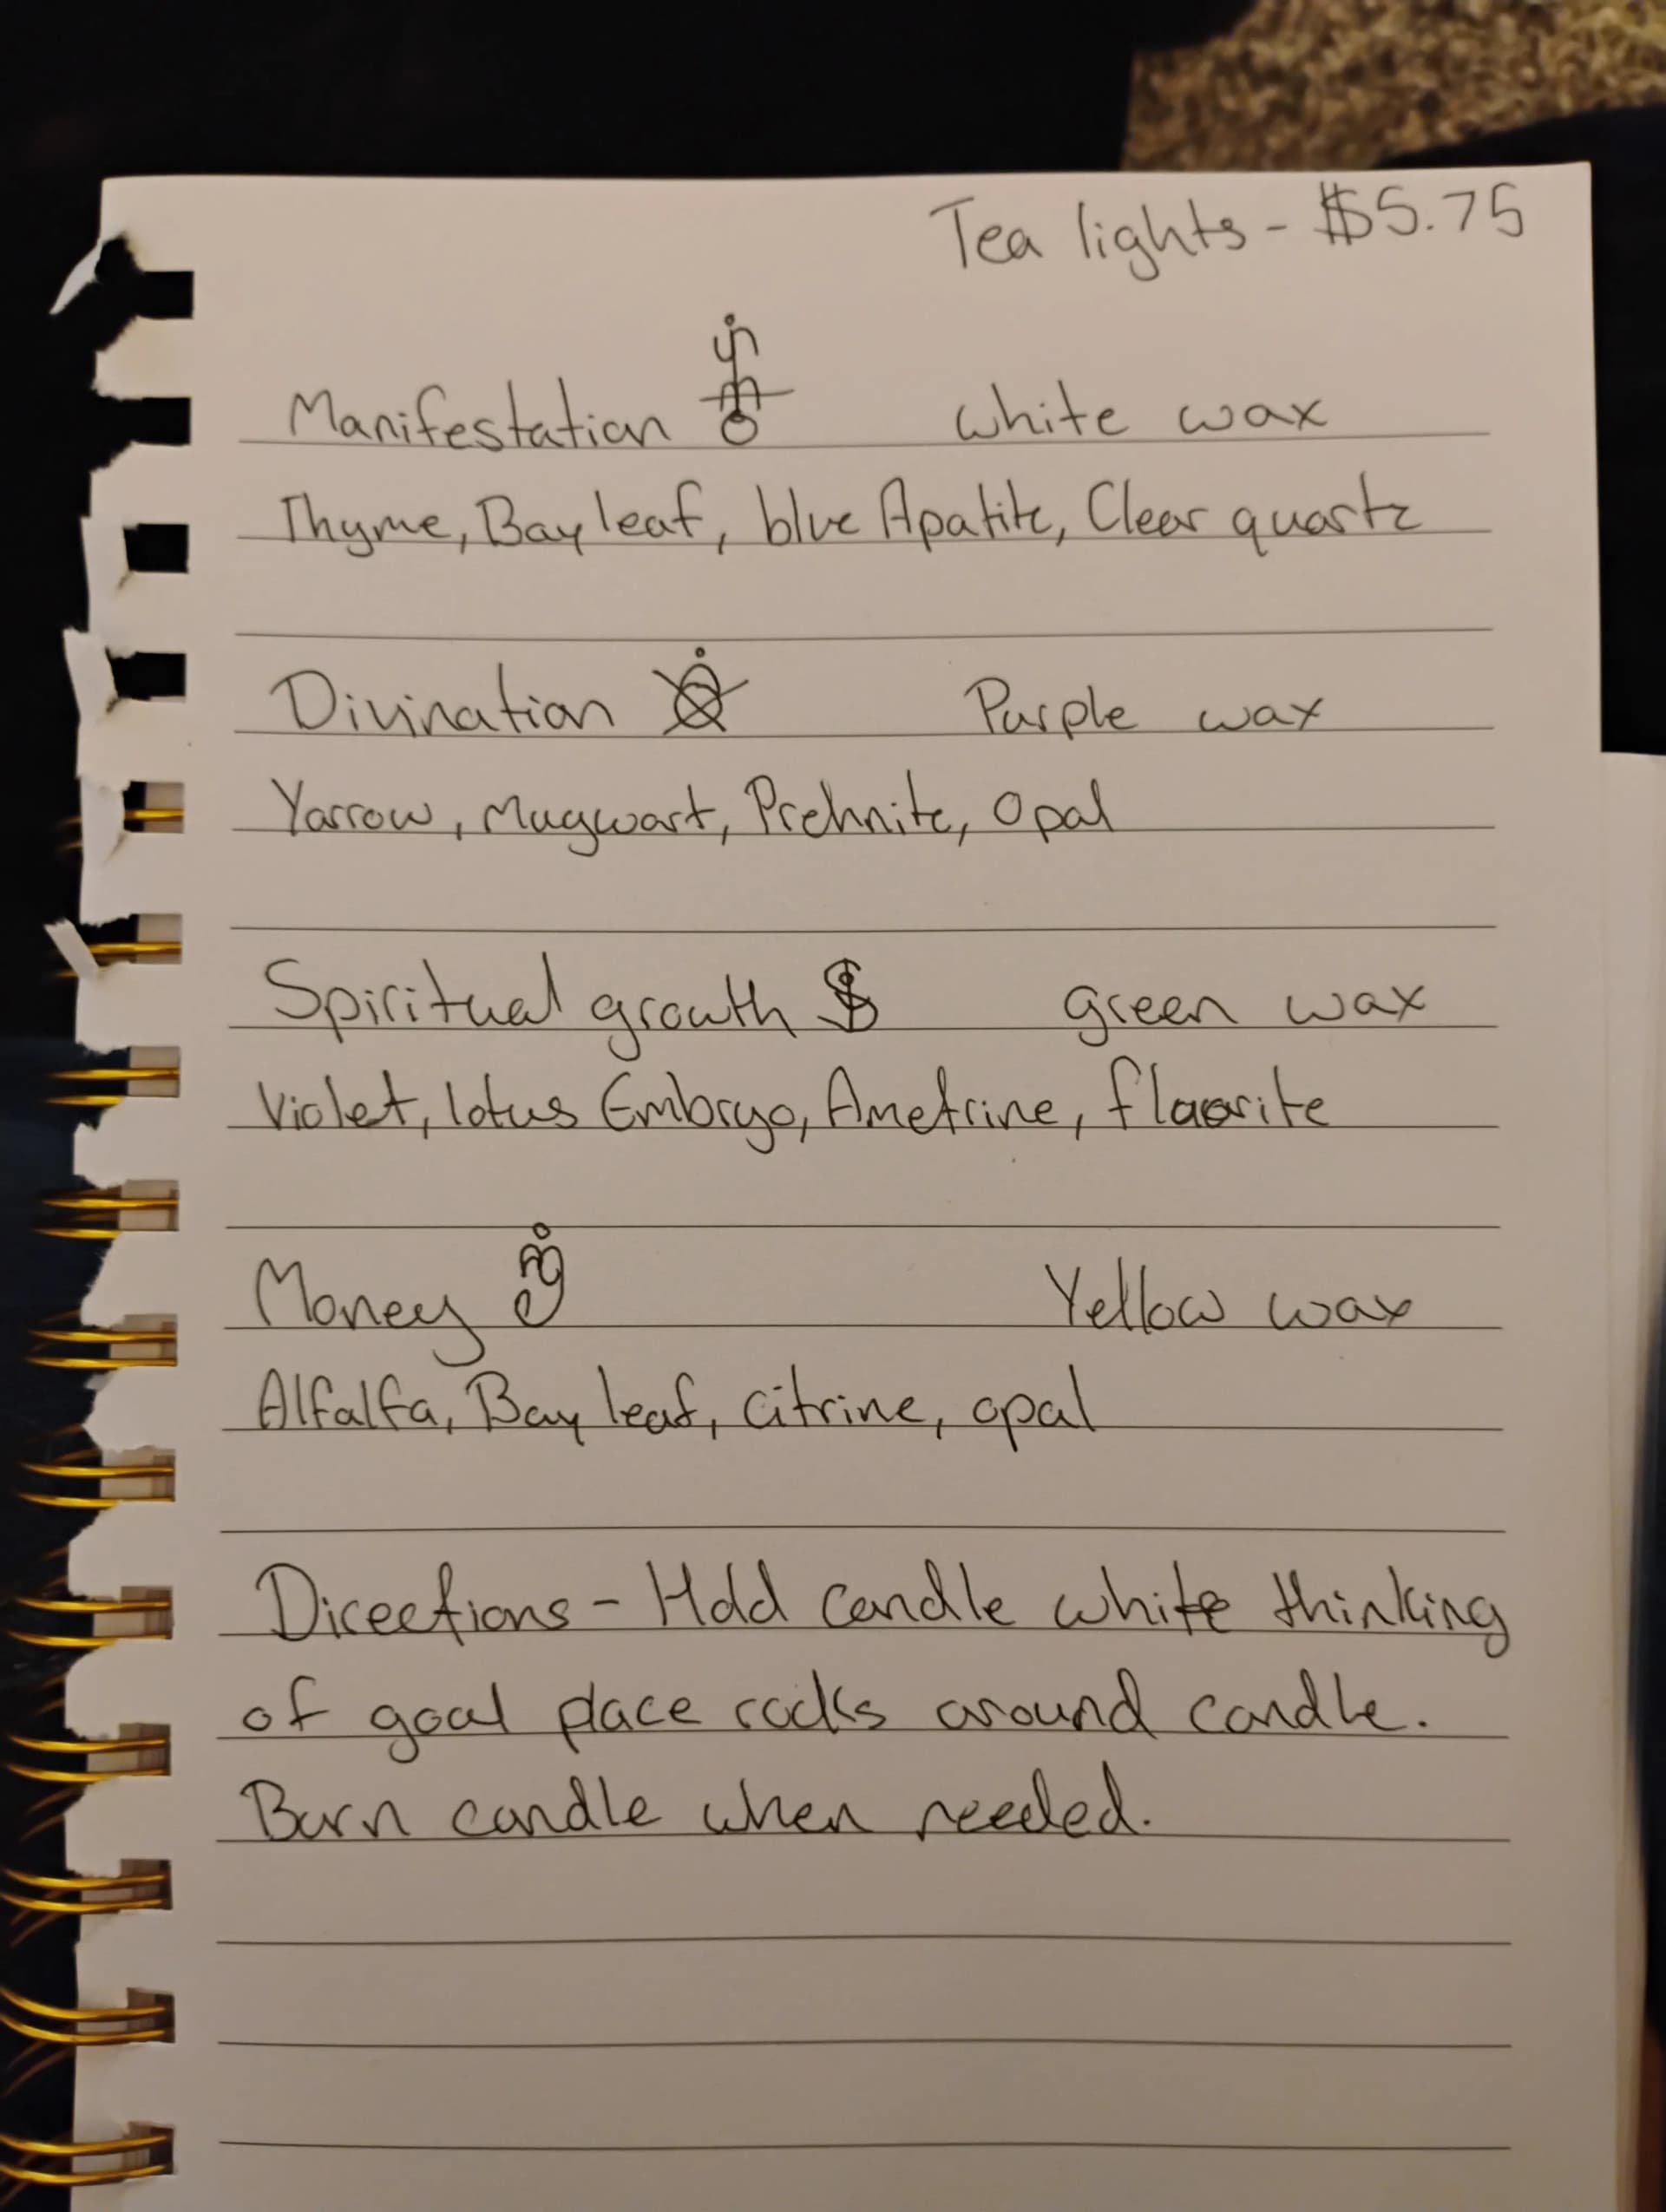 Tea lights - $5.75
Manifestation white wax
Thyme, Bay leaf, blue Apatite, Clear quartz
Divination Purple wax
Yarrow, Mugwort, Prehnite, Opal
Spiritual growth green wax
Violet, lotus Embryo, Ametrine, fluorite
Money Yellow wax
Alfalfa, Bay leaf, citrine, opal
Directions - Hold candle white thinking
of goal place rocks around candle.
Burn candle when needed.